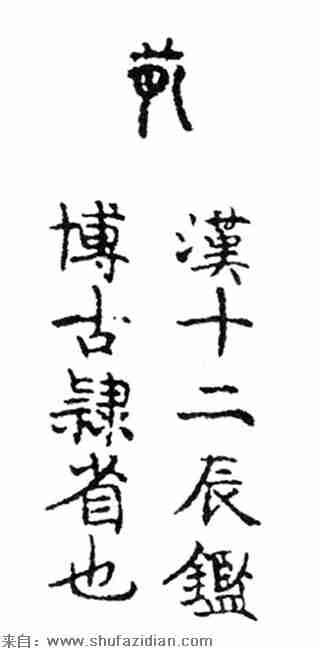 漢十二辰鑑
博古隸省也
来自：www.shufazidian.com